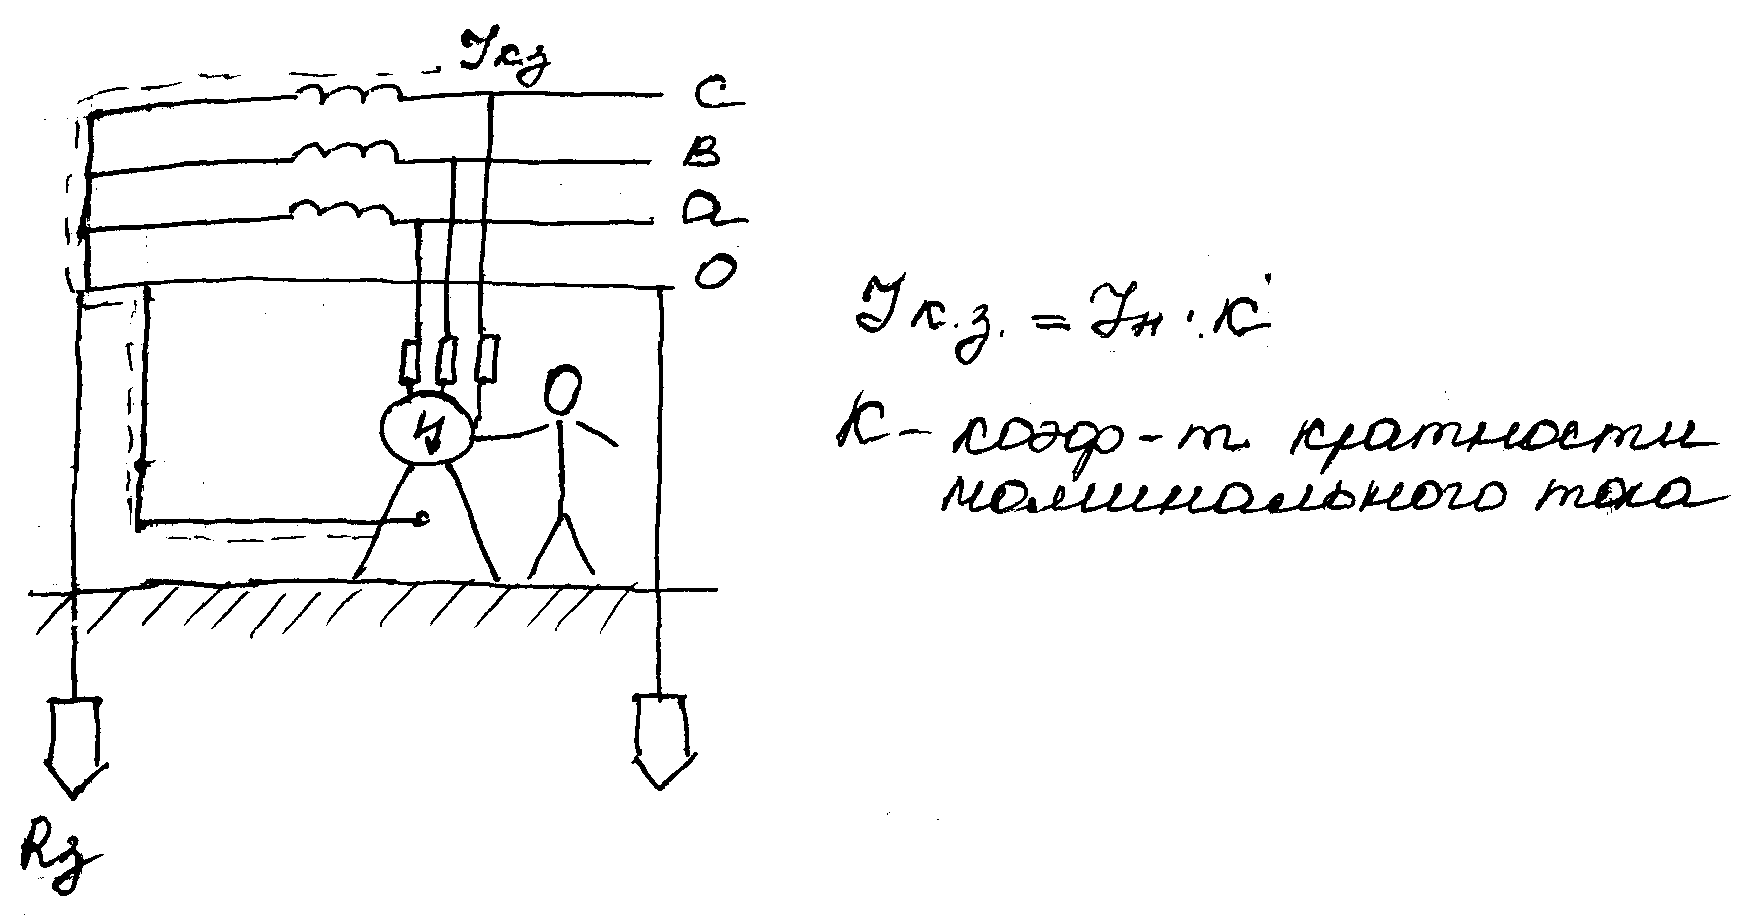 Iкз
C
B
a
O
Iк.з. = Iн · К
К - коэф-т кратности
номинального тока
Rз